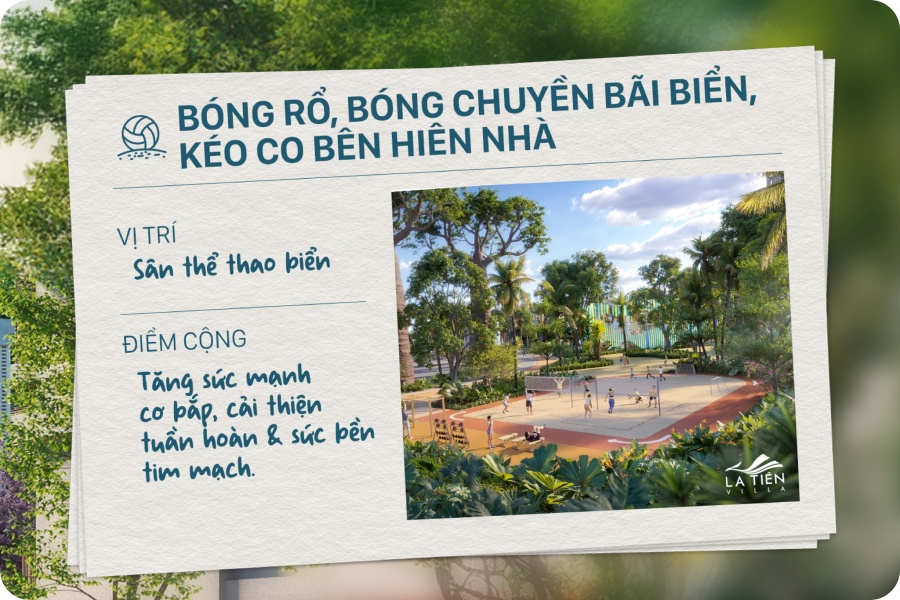 BÓNG RỔ, BÓNG CHUYỀN BÃI BIỂN,
KÉO CO BÊN HIÊN NHÀ
VỊ TRÍ
Sân thể thao biển
ĐIỂM CỘNG
Tăng sức mạnh
cơ bắp, cải thiện
tuần hoàn & sức bền
tim mạch.
LA TIÊN
VILLA